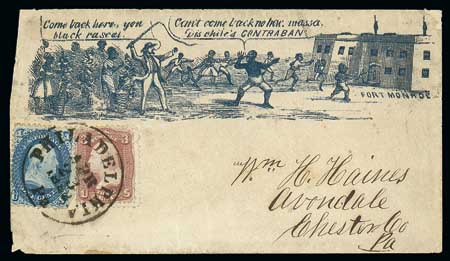 Come back here, you
black rascal.
Can't come back no how, massa.
Dis chile's CONTRABAN.
FORT MONROE
PHILADELPHIA
PA
3
3
U
S
Wm H. Haines
Avondale
Chester Co
Pa